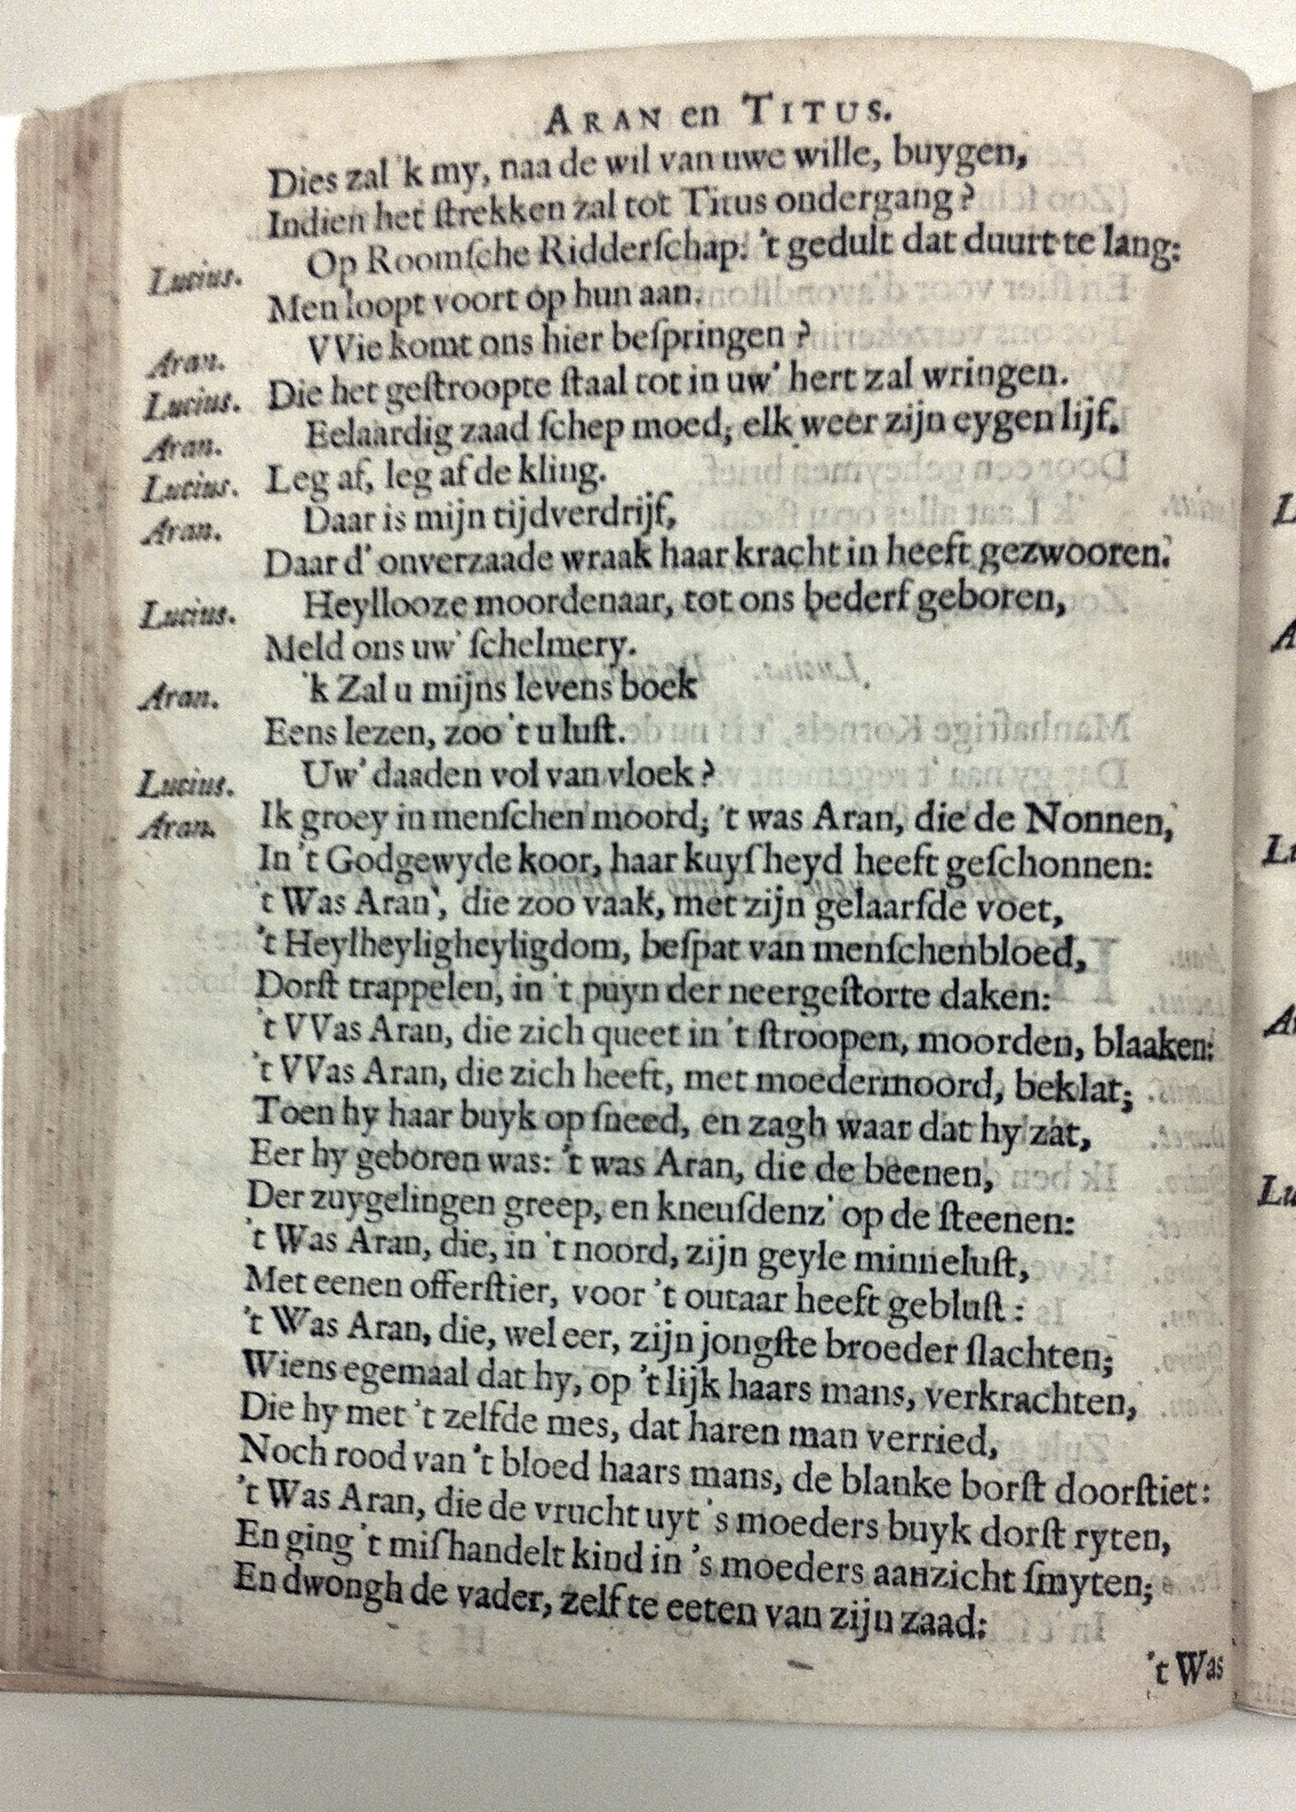 ARAN en TITUS.
Dies zal 'k my, naa de wil van uwe wille, buygen,
Indien het ſtrekken zal tot Titus ondergang?
Lucius. Op Roomſche Ridderſchap. 't gedult dat duurt te lang:
Men loopt voort op hun aan.
Aran. VVie komt ons hier beſpringen?
Lucius. Die het geſtroopte ſtaal tot in uw' hert zal wringen.
Aran. Eelaardig zaad ſchep moed; elk weer zijn eygen lijf.
Lucius. Leg af, leg af de kling.
Aran. Daar is mijn tijdverdrijf,
Daar d' onverzaade wraak haar kracht in heeft gezwooren.
Lucius. Heyllooze moordenaar, tot ons bederf geboren,
Meld ons uw' ſchelmery.
Aran. 'k Zal u mijns levens boek
Eens lezen, zoo 't u luſt.
Lucius. Uw' daaden vol van vloek?
Aran. Ik groey in menſchen moord; 't was Aran, die de Nonnen,
In 't Godgewyde koor, haar kuyſheyd heeft geſchonnen:
't Was Aran, die zoo vaak, met zijn gelaarſde voet,
't Heylheyligheyligdom, beſpat van menſchenbloed,
Dorſt trappelen, in 't puyn der neergeſtorte daken:
't VVas Aran, die zich queet in 't ſtroopen, moorden, blaaken:
't VVas Aran, die zich heeft, met moedermoord, beklat;
Toen hy haar buyk op ſneed, en zagh waar dat hy zat,
Eer hy geboren was: 't was Aran, die de beenen,
Der zuygelingen greep, en kneuſdenz' op de ſteenen:
't Was Aran, die, in 't noord, zijn geyle minneluſt,
Met eenen offerſtier, voor 't outaar heeft gebluſt:
't Was Aran, die, wel eer, zijn jongſte broeder ſlachten;
Wiens egemaal dat hy, op 't lijk haars mans, verkrachten,
Die hy met 't zelfde mes, dat haren man verried,
Noch rood van 't bloed haars mans, de blanke borſt doorſtiet:
't Was Aran, die de vrucht uyt 's moeders buyk dorſt ryten,
En ging 't miſhandelt kind in 's moeders aanzicht ſmyten;
En dwongh de vader, zelf te eeten van zijn zaad:
't Was